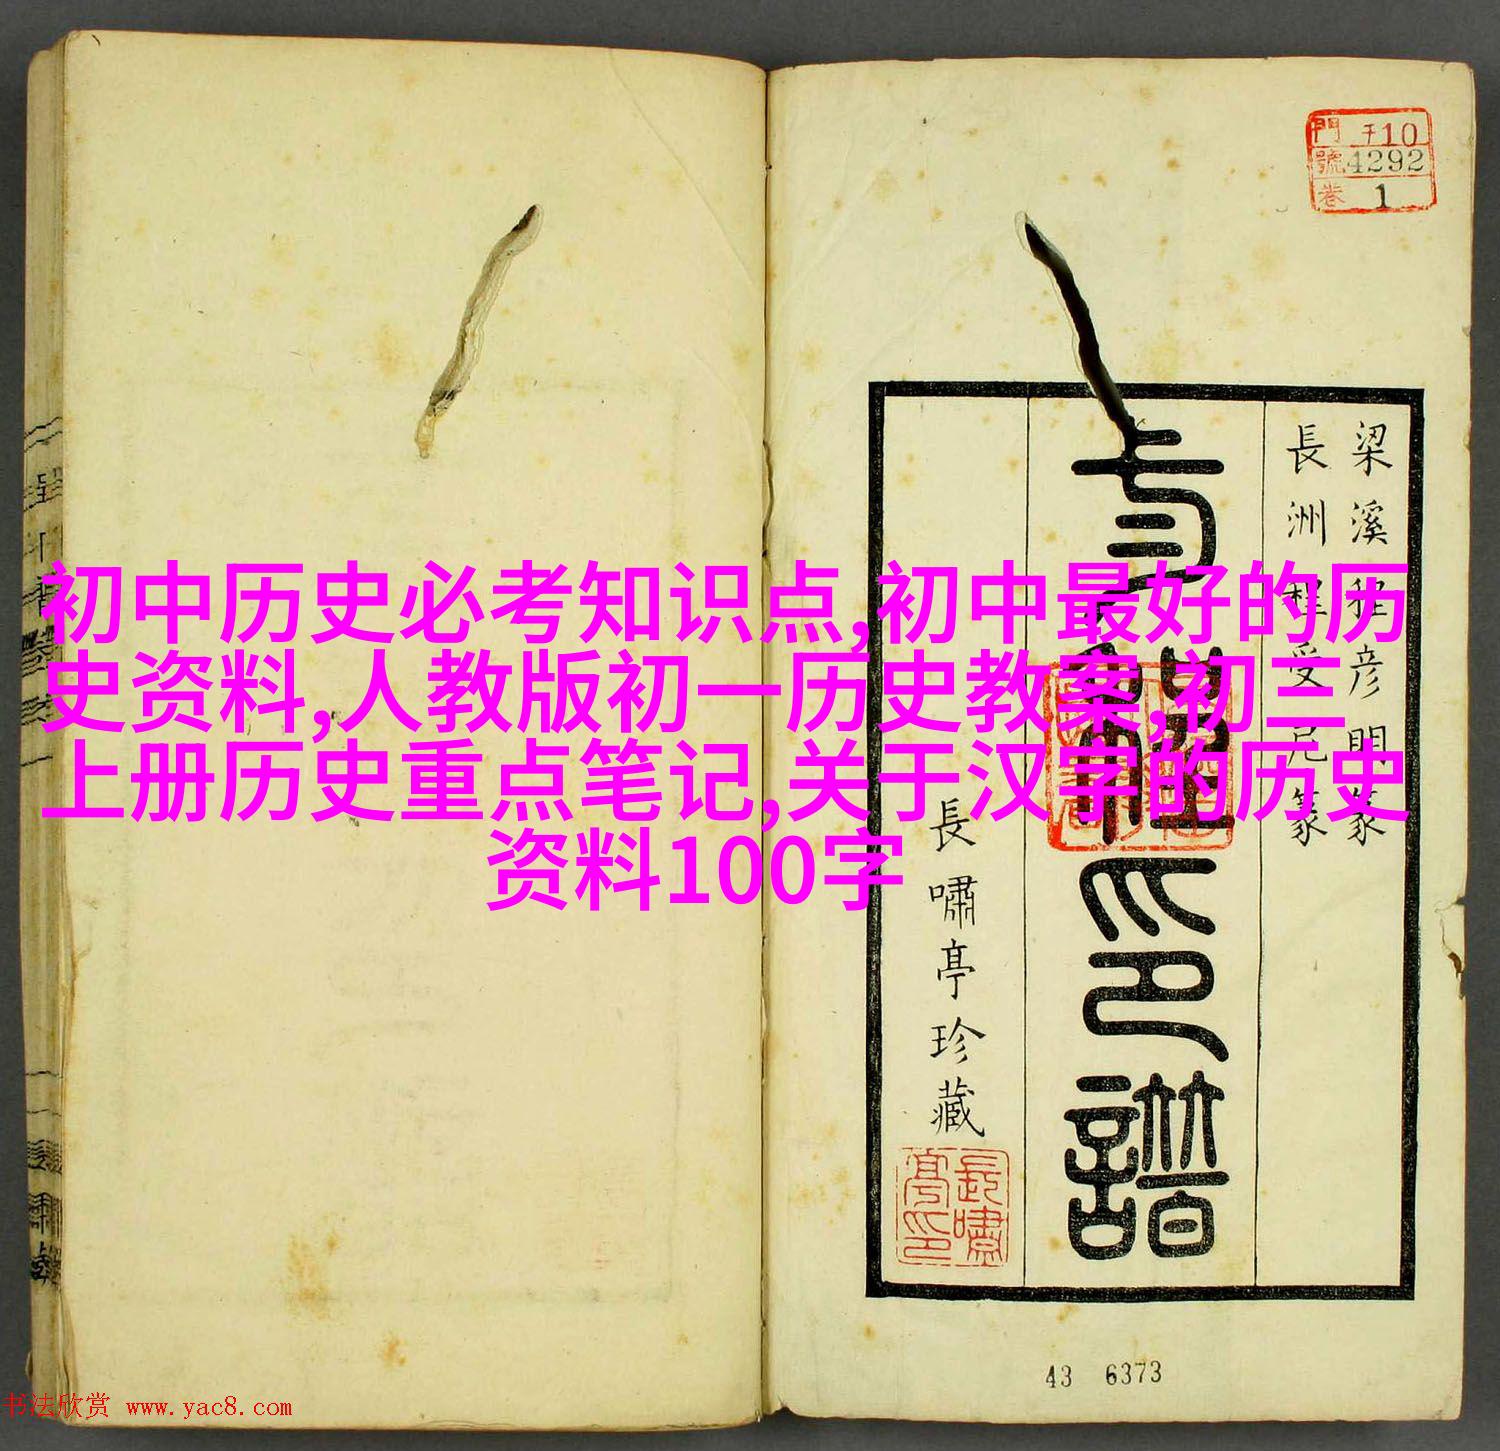 門 子10
號 4292
卷 1
梁溪程彦明篆
長洲程受尼篆
印譜
長嘯亭珍藏
長嘯亭印
初中历史必考知识点,初中最好的历
史资料,人教版初一历史教案,初三
上册历史重点笔记,关于汉字的历史
资料100字
43 6373
书法欣赏 www.yac8.com